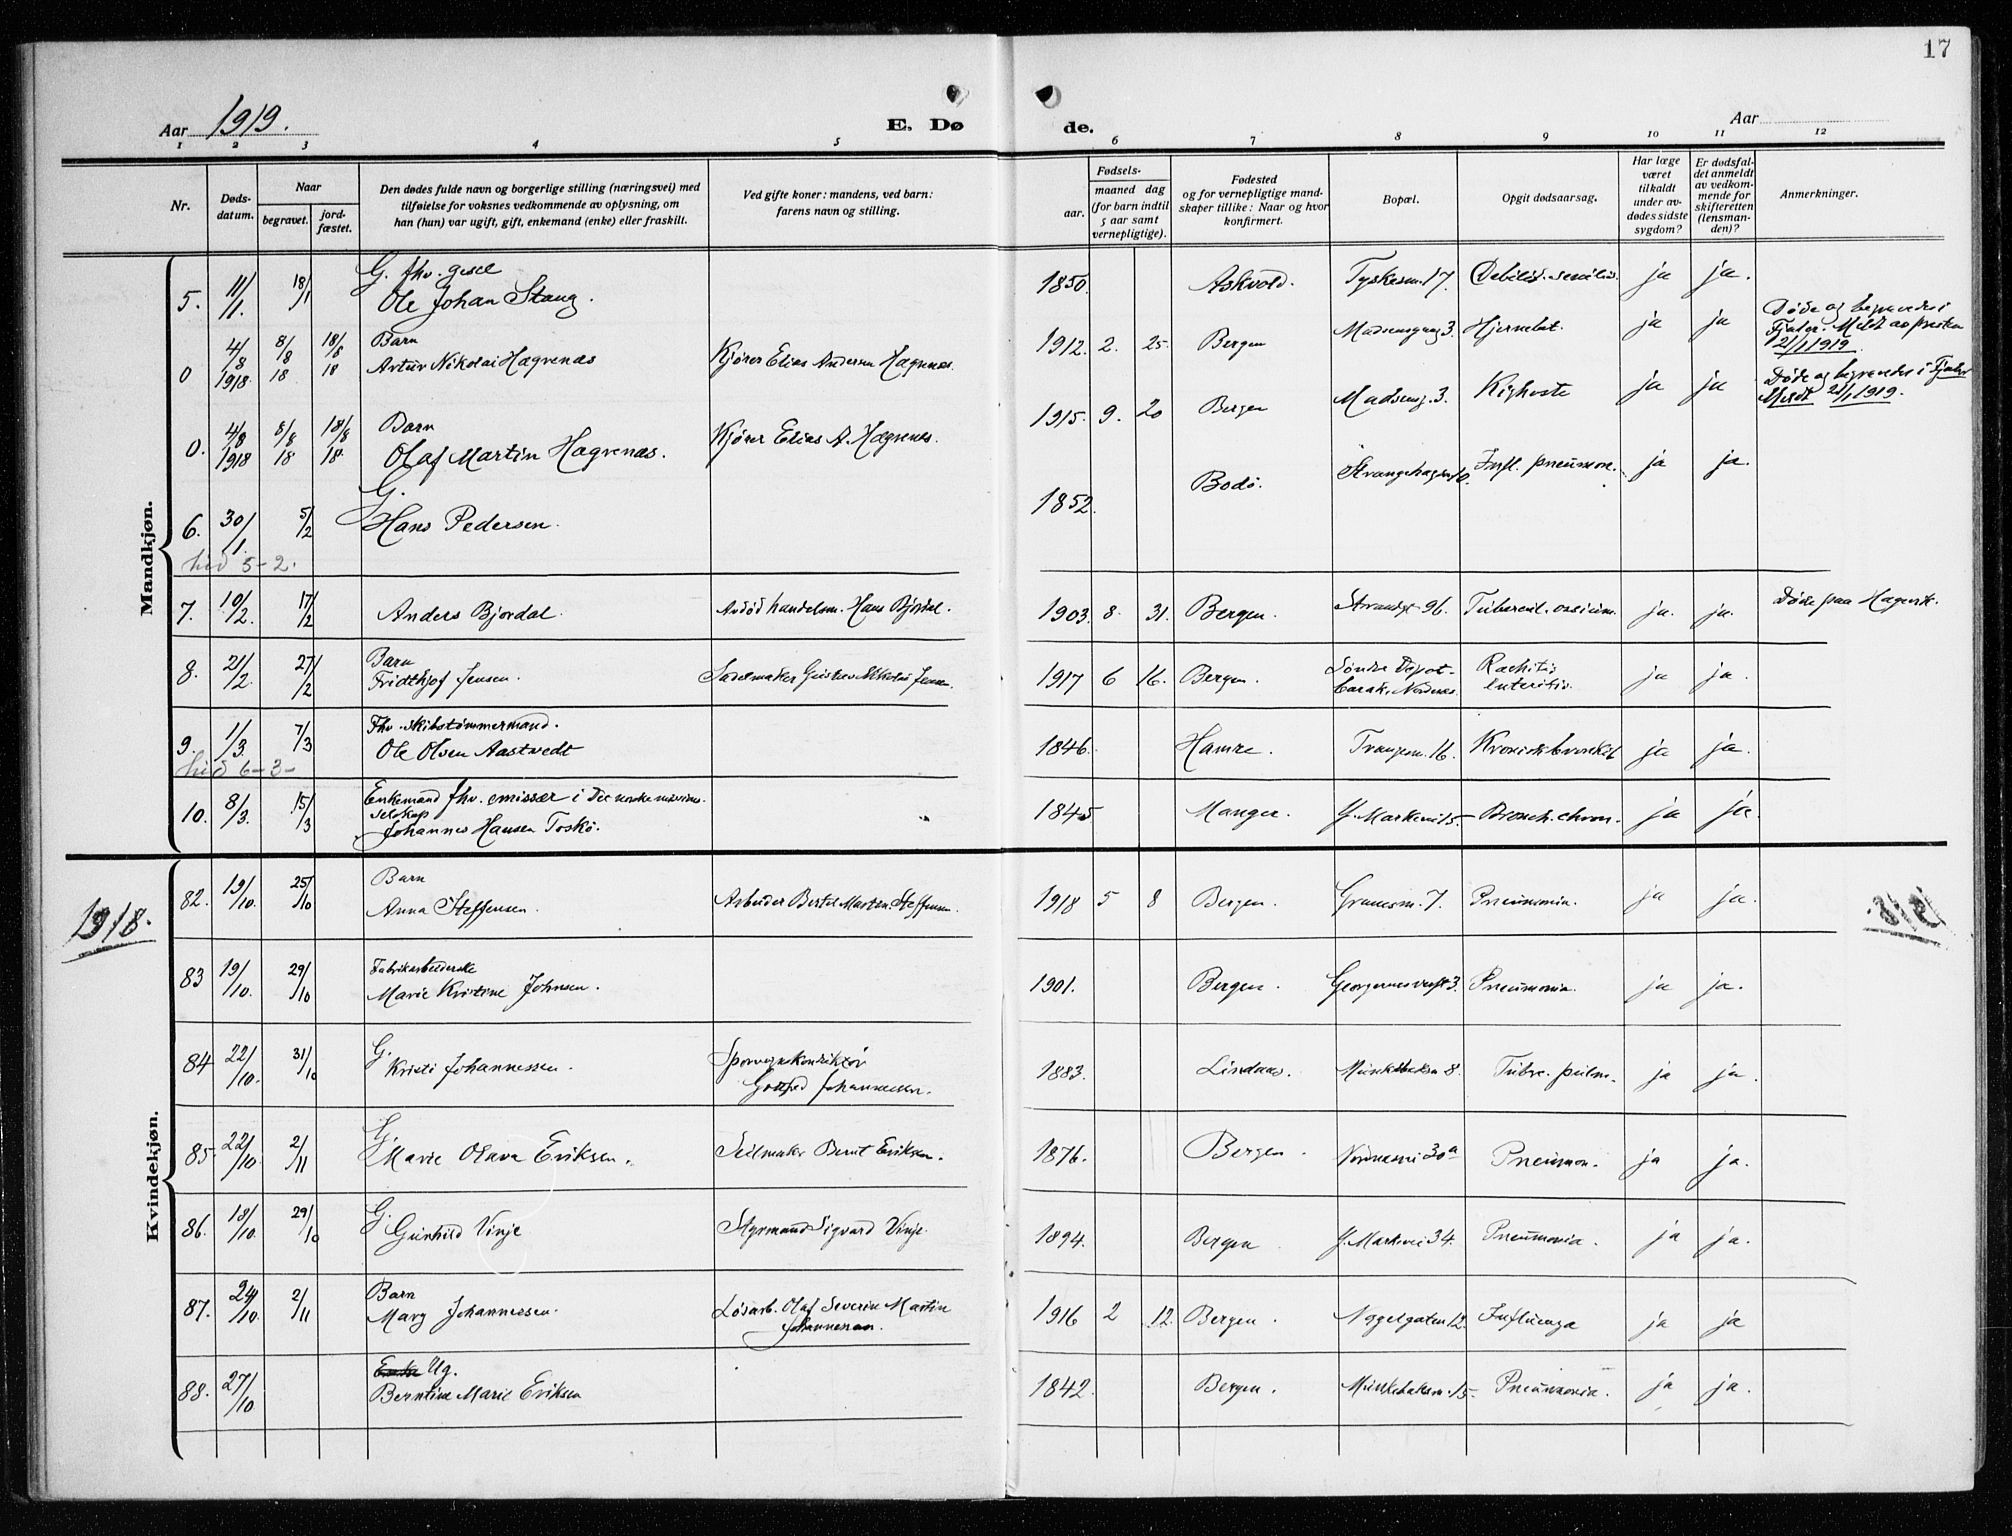 17
Aar 1919.
E. Dø de.
Aar
1 2 3 4 5 6 7 8 9 10 11 12
Nr.
Døds-
datum.
Naar
begravet.
jord-
fæstet.
Den dødes fulde navn og borgerlige stilling (næringsvei) med
tilføielse for voksnes vedkommende av oplysning, om
han (hun) var ugift, gift, enkemand (enke) eller fraskilt.
Ved gifte koner: mandens, ved barn:
farens navn og stilling.
Fødsels-
aar.
maaned dag
(for barn indtil
5 aar samt
vernepligtige).
Fødested
og for vernepligtige mand-
skaper tillike: Naar og hvor
konfirmert.
Bopæl.
Opgit dødsaarsag.
Har læge
været
tilkaldt
under av-
dødes sidste
sygdom?
Er dødsfal-
det anmeldt
av vedkom-
mende for
skifteretten
(lensman-
den)?
Anmerkninger.
Mandkjøn.
5. 11/1. 18/1 G. fhv. gesel
Ole Johan Stang. 1850. Askvold. Tyskesm. 17. Debilit. senilis. ja ja.
0 4/8 1918. 8/8 18 18/8 18 Barn
Artur Nikolai Hagrenæs Kjører Elias Andersen Hagrenæs. 1912. 2. 25. Bergen Madsensgang 3. Hjernebet. ja ja Døde og begravedes i
Fjaler. Meldt av presten
21/1 1919.
0. 4/8 1918 8/8 18 18/8 18 Barn
Olaf Martin Hagrenæs. Kjører Elias A. Hagrenæs. 1915. 9. 20 Bergen Madsensg. 3. Kighoste ja ja Døde og begravedes i Fjaler
Meldt 21/1 1919.
6. 30/1. 5/2 G.
Hans Pedersen. 1852. Bodø. Strangehagen 10. Infl. pneumon. ja ja.
hid 5-2.
7. 10/2. 17/2 Anders Bjordal. Avdød handelsm. Hans Bjordal. 1903. 8. 31. Bergen. Strandgt 96. Tubercul. ossium. ja. ja. Døde paa Hagevik.
8. 21/2. 27/2 Barn
Fridthjof Jensen. Sadelmaker Gustav Nikolai Jensen. 1917 6 16. Bergen. Søndre Depot-
barak. Nordnes. Rachitis
Enteritis. ja ja.
9. 1/3. 7/3 Fhv. skibstømmermand.
Ole Olsen Aastvedt 1846. Hamre. Trangesm. 16. Kronisk bronkit ja ja.
hid 6-3-
10. 8/3. 15/3 Enkemand fhv. emissær i Det norske misjons-
selskap
Johannes Hansen Toskø. 1845 Manger. Y. Markevei 15- Bronch. chron. ja ja.
Kvindekjøn.
1918.
82. 19/10. 25/10 Barn
Anna Steffensen. Arbeider Bertel Martin Steffensen. 1918 5 8 Bergen. Grunesm. 7. Pneumonia. ja ja.
83 19/10. 29/10 Fabrikarbeiderske
Marie Kristine Johnsen. 1901. Bergen. Georgernesverft 3. Pneumonia. ja ja.
84 22/10. 31/10 G.
Kristi Johannessen. Sporveiskonduktør
Gotfred Johannessen. 1883. Lindaas. Munkebeksm 8. Tubrc. pulm. ja ja.
85- 22/10. 2/11 G.
Marie Olava Eriksen. Seilmaker Bernt Eriksen. 1876. Bergen. Nordnesvei 30a Pneumon. ja ja.
86. 18/10. 29/10 G.
Gunhild Vinje Styrmand Sigvard Vinje. 1894. Bergen Y. Markevei 34. Pneumonia. ja ja.
87. 24/10. 2/11 Barn
Mary Johannessen. Løsarb. Olaf Severin Martin
Johannessen. 1916 2 12. Bergen. Nøggelgaten 12. Influenza ja ja
88. 27/10 Enke Ug.
Berntine Marie Eriksen 1842. Bergen. Munkebeksm. 15- Pneumonia. ja ja.